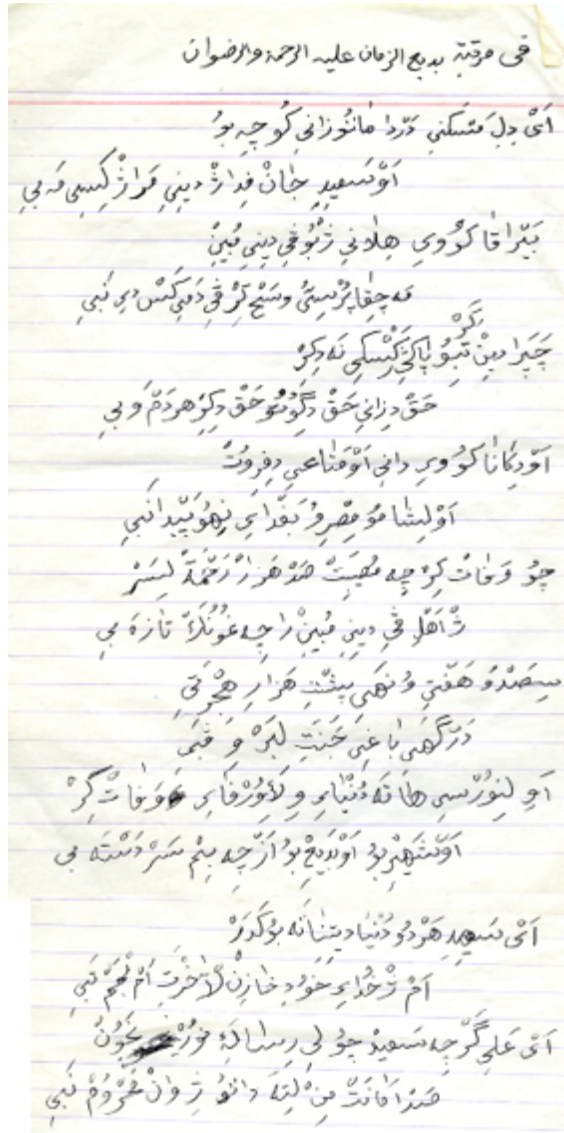 فى مرثية بديع الزمان عليه الرحمة والرضوان
اَىْ دِلِ مِسْكِنِ دَرْدا مانُوزانى كُو چِه بُو
اَوْ سَعِيدِ جانْ فِدا رْ دِينِى مَرازْ كِيسِى مَه بِى
بَيْراقا كُو وىِ هِلانى ژْبُو ڤِى دِينِى مُبِينْ
مَه چِقا پُرْسِى وسَحْ كِرْ ڤِى دَمِى كَسْ دى نَبِى
چَپَرا دِينْ تَبُو پاكِژْ كِرْ نَه دِكِرْ
حَقْ دِزانى حَقْ دِگُوتُو حَقْ دِكِرْ هردَمْ وَ بِى
اَوْ دِكانا كُو وىِ دانى اَوْ مَتاعىِ دِفِرُوتْ
اَوْ لِشامُ و مِصْرِ وُ بَغْدايِى نِهُو پَيْدا نَبِى
چُو وَفاتْ كِرْ چِه مُصِيبَتْ صَدْ هَزارْ رَحْمَة لِسَرْ
ژْ اَهْلِ ڤِى دِينِى مُبِينْ را چِه تازَه بِى
سِيصَدُو هَفْتِى وُ نَهَى پِشْتِ هَزارِ هِجْرَتِى
دَرْگَهِى باغِى جَنَّتِ لِبَرْ وَ ڤَبِى
اَوِ لِنُورْسِى هاتَه دُنْيايِى و لِاُورْفايِى وَفاتْ كِرْ
اَوْ شَهِيرْ بُو اَوْ بَدِيعْ بُو اَزْ چِه بِيمْ سَرْ دَسْتَه بى
اَىْ سَعِيدِ هَرْدُو دُنْيا دِيتِنا تَه بُو كَدَرْ
اَمْ ژْ خُدايىِ خَوُدِ خازِنْ لْآخْرَتِ اَمْ لْجَمْ تَبِى
اَىْ عَلِى گَرْچِه سَعِيدْ چُو لِى رِسالَةِ نُورِىْ بِخَوُنْ
صَدْ اَمانَتْ مِنْ لِتَه دانُو ژْوانْ مَحْرُومْ نَبِى